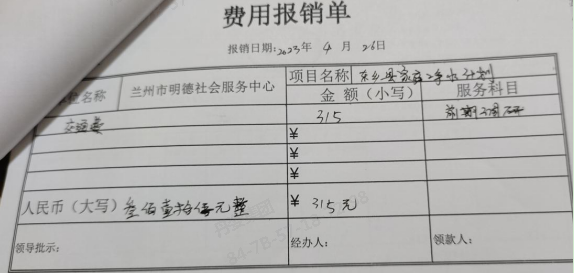 费用报销单
报销日期：2023年 4 月 26日
位名称 兰州市明德社会服务中心 项目名称 东乡县家庭净水计划
金 额（小写） 服务科目
交通费 315 前期调研
¥
¥
¥
人民币（大写）叁佰壹拾伍元整 ¥ 315元
领导批示： 经办人： 领款人：